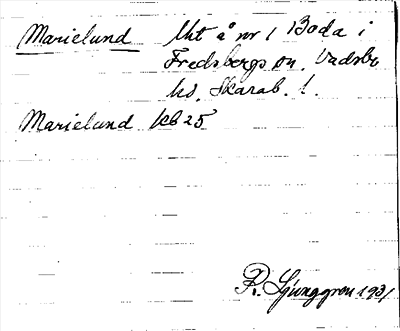 Marielund Utt å nr 1 Boda i
Fredsbergs sn. Vadsbo
hd. Skarab. l.
Marielund kb 25
R. Ljunggren 1931